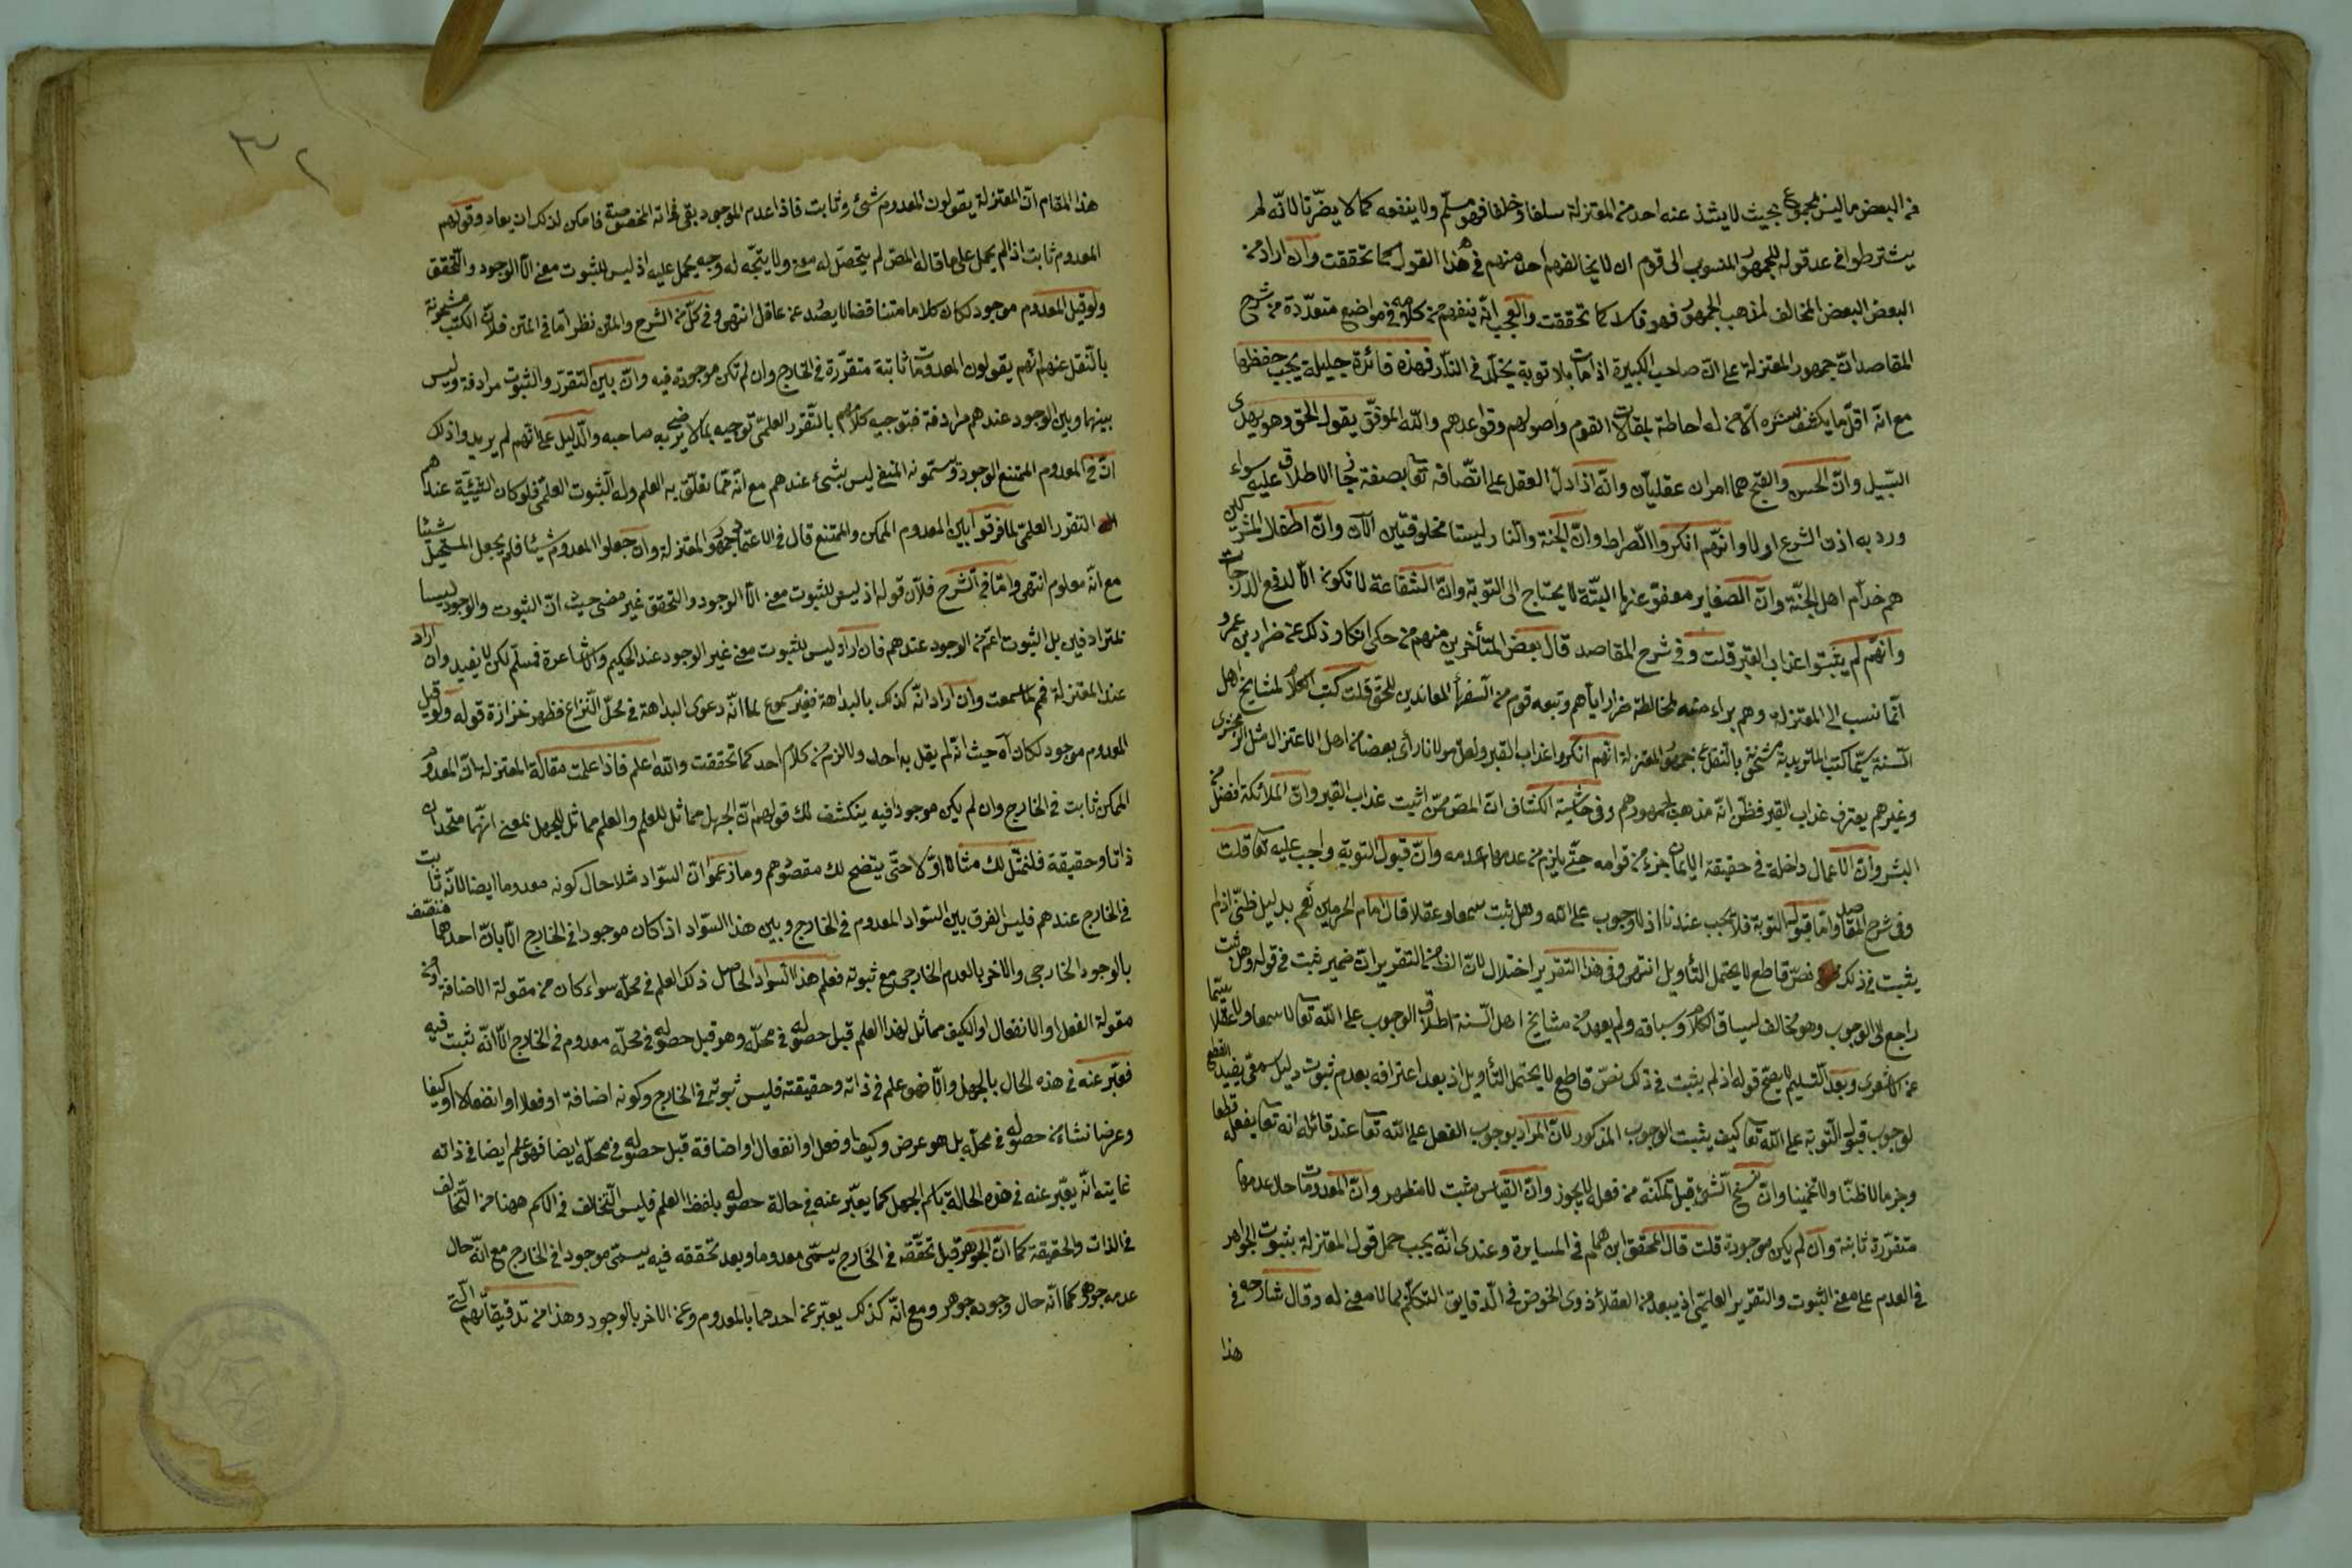 في البعض ما ليس بمجموع بحيث لا يشذ عنه احد من المعتزلة سلفا وخلفا فهو مسلّم ولا ينفعه كما لا يضرّنا لانّه لم
يشترطوا في عد قوله للجمهور المنسوب الى قوم ان لا يخالفهم احد منهم في هذا القول كما تحققت وان اراد من
البعض البعض المخالف لمذهب الجمهور فهو فاسد كما تحققت والعجب انّه ينفهم من كلامه في مواضع متعدّدة من شرح
المقاصد انّ جمهور المعتزلة على انّ صاحب الكبيرة اذا مات بلا توبة يخلّد في النّار فهذه فائدة جليلة يجب حفظها
مع انّه اقلّ ما يكشف ستره الّا من له احاطة بمقالات القوم واصولهم وقواعدهم والله الموفّق يقول الحق وهو يهدى
السّبيل وانّ الحسن والقبح هما امران عقليّان وانّه اذا دلّ العقل على اتّصافه تعا بصفة جاز الاطلاق عليه سواء
ورد به اذن الشرع او لا وانّهم انكروا الصّراط وانّ الجنة والنّار ليستا مخلوقتين الآن وانّ اطفال المشركين
هم خدّام اهل الجنّة وانّ الصغاير معفوّ عنها البتّة لا يحتاج الى التوبة وانّ الشّفاعة لا تكون الّا لرفع الدرجات
وانّهم لم يثبتوا عذاب القبر قلت وفي شرح المقاصد قال بعض المتأخرين منهم من حكى انكار ذلك عن ضرار بن عمرو
انّما نسب الى المعتزلة وهم براء منه لمخالطة ضرار ايّاهم وتبعه قوم من السّفهاء المعاندين للحق قلت كتب الكلام لمشايخ اهل
السّنة سيّما كتب الماتريدية مشحونة بالنّقل عن جمهور المعتزلة انّهم انكروا عذاب القبر ولعلّ مولانا رأى بعضا من اهل الاعتزال مثل الزمخشرى
وغيرهم يعترف عذاب القبر فظنّ انّه مذهب لجمهورهم وفي حاشية الكشاف انّ المص ممّن اثبت عذاب القبر وانّ الملائكة افضل من
البشر وانّ الاعمال داخلة في حقيقة الايمان جزء من قوامه حتّى يلزم من عدمها عدمه وانّ قبول التوبة واجب عليه تعا قلت
وفي شرح المقاصد وامّا قبول التوبة فلا يجب عندنا اذ لا وجوب على الله وهل ثبت سمعا وعقلا قال امام الحرمين نعم بدليل ظنّى اذ لم
يثبت في ذلك نصّ قاطع لا يحتمل التّأويل انتهى وفي هذا التقرير اختلال لانّ الظ من التقرير انّ ضمير ثبت في قوله وهل ثبت
راجع الى الوجوب وهو مخالف لسياق الكلام وسباقه ولم يعهد من مشايخ اهل السّنة اطلاق الوجوب على الله تعا لا سمعا ولا عقلا سيّما
عن الاشعرى وبعد التّسليم لا يصح قوله اذ لم يثبت في ذلك نصّ قاطع لا يحتمل التأويل اذ بعد اعترافه بعدم ثبوت دليل سمعى يفيد القطع
لوجوب قبول التّوبة على الله تعا كيف يثبت الوجوب المذكور لانّ المراد بوجوب الفعل على الله تعا عند قائله انه تعا يفعله قطعا
وجزما لا ظنّا ولا تخمينا وانّ نسخ الشّئ قبل تمكنّه من فعله لا يجوز وانّ القياس مثبت لا مظهر وانّ المعدومات حال عدمها
متقرّرة ثابتة وان لم يكن موجودة قلت قال المحقق ابن همام في المسايرة وعندى انّه يجب حمل قول المعتزلة بثبوت الجواهر
في العدم على معنى الثبوت والتقرير العلمّى اذ يبعد من العقلاء ذوى الخوض في الدّقايق التكلّم بما لا معنى له وقال شارحه في
هذا
٣٢
هذا المقام انّ المعتزلة يقولون المعدوم شئ وثابت فاذا عدم الموجود بقى ذاته المخصوصة فامكن لذلك ان يعاد وقولهم
المعدوم ثابت اذا لم يحمل على ما قاله المص لم يتحصّل له معنى ولا يتّجه له وجه يحمل عليه اذ ليس للثبوت معنى الّا الوجود والتّحقق
ولو قيل المعدوم موجود لكان كلاما متناقضا لا يصدر عن عاقل انتهى وفي كلّ من الشرح والمتن نظر امّا في المتن فلانّ الكتب مشحونة
بالنّقل عنهم انّهم يقولون المعدومات ثابتة متقرّرة في الخارج وان لم تكن موجودة فيه وانّ بين التقرّر والثبوت مرادفة وليس
بينهما وبين الوجود عندهم مرادفة فتوجيه كلامهم بالتّقرر العلمّى توجيه بما لا يرضى به صاحبه والدّليل على انّهم لم يريدوا ذلك
انّ في المعدوم الممتنع الوجود ويسمّونه المنفى ليس بشئ عندهم مع انّه ممّا تعلّق به العلم وله الثّبوت العلمّى فلو كان الشّيئية عندهم
التقرر العلمّى لما فرقوا بين المعدوم الممكن والممتنع قال في الاعتماد جمهور المعتزلة وان جعلوا المعدوم شيئا فلم يجعل المستحيل شيئا
مع انّه معلوم انتهى وامّا في الشّرح فلانّ قوله اذ ليس للثبوت معنى الّا الوجود والتحقق غير مرضى حيث انّ الثبوت والوجود ليسا
بمترادفين بل الثبوت اعمّ من الوجود عندهم فان اراد ليس للثبوت معنى غير الوجود عند الحكيم والاشاعرة فمسلّم لكن لا يفيد وان اراد
عند المعتزلة فمم لما سمعت وان اراد انّه كذلك بالبداهة فغير مسموع لما انّه دعوى البداهة في محلّ النّزاع فظهر حزازة قوله ولو قيل
المعدوم موجود لكان آه حيث انّه لم يقل به احد ولا لزم من كلام احد كما تحققت والله اعلم فاذا علمت مقالة المعتزلة بانّ المعدوم
الممكن ثابت في الخارج وان لم يكن موجودا فيه ينكشف لك قولهم انّ الجهل مماثل للعلم والعلم مماثل للجهل بمعنى انّهما متحدان
ذاتا وحقيقة فلنمثّل لك مثالا اوّلا حتّى يتضح لك مقصودهم وما زعموا انّ السّواد مثلا حال كونه معدوما ايضا لانّه ثابت
في الخارج عندهم فليس الفرق بين السّواد المعدوم في الخارج وبين هذا السّواد اذا كان موجودا في الخارج الّا بانّ احدهما متّصف
بالوجود الخارجى والاخر بالعدم الخارجى مع ثبوته فعلم هذا السّواد الحاصل ذلك العلم في محلّه سواء كان من مقولة الاضافة او من
مقولة الفعل او الانفعال او الكيف مماثل لهذا العلم قبل حصوله في محلّه وهو قبل حصوله في محلّه معدوم في الخارج الّا انّه ثبت فيه
فعبّر عنه في هذه الحال بالجهل والّا فهو علم في ذاته وحقيقته فليس ثبوته في الخارج وكونه اضافة او فعلا او انفعالا او كيفا
وعرضا نشاء من حصوله في محلّه بل هو عرض وكيف او فعل او انفعال او اضافة قبل حصوله في محلّه ايضا فهو علم ايضا في ذاته
غايته انّه يعبّر عنه في هذه الحالة باسم الجهل كما يعبّر عنه في حالة حصوله بلفظ العلم فليس التّخالف في الاسم ههنا من التّخالف
في الذات والحقيقة كما انّ الجوهر قبل تحقّقه في الخارج يسمّى معدوما وبعد تحققه فيه يسمّى موجودا في الخارج مع انّه حال
عدمه جوهر كما انّه حال وجوده جوهر ومع انّه كذلك يعبّر عن احدهما بالمعدوم وعن الاخر بالوجود وهذا من تدقيقاتهم الّتى